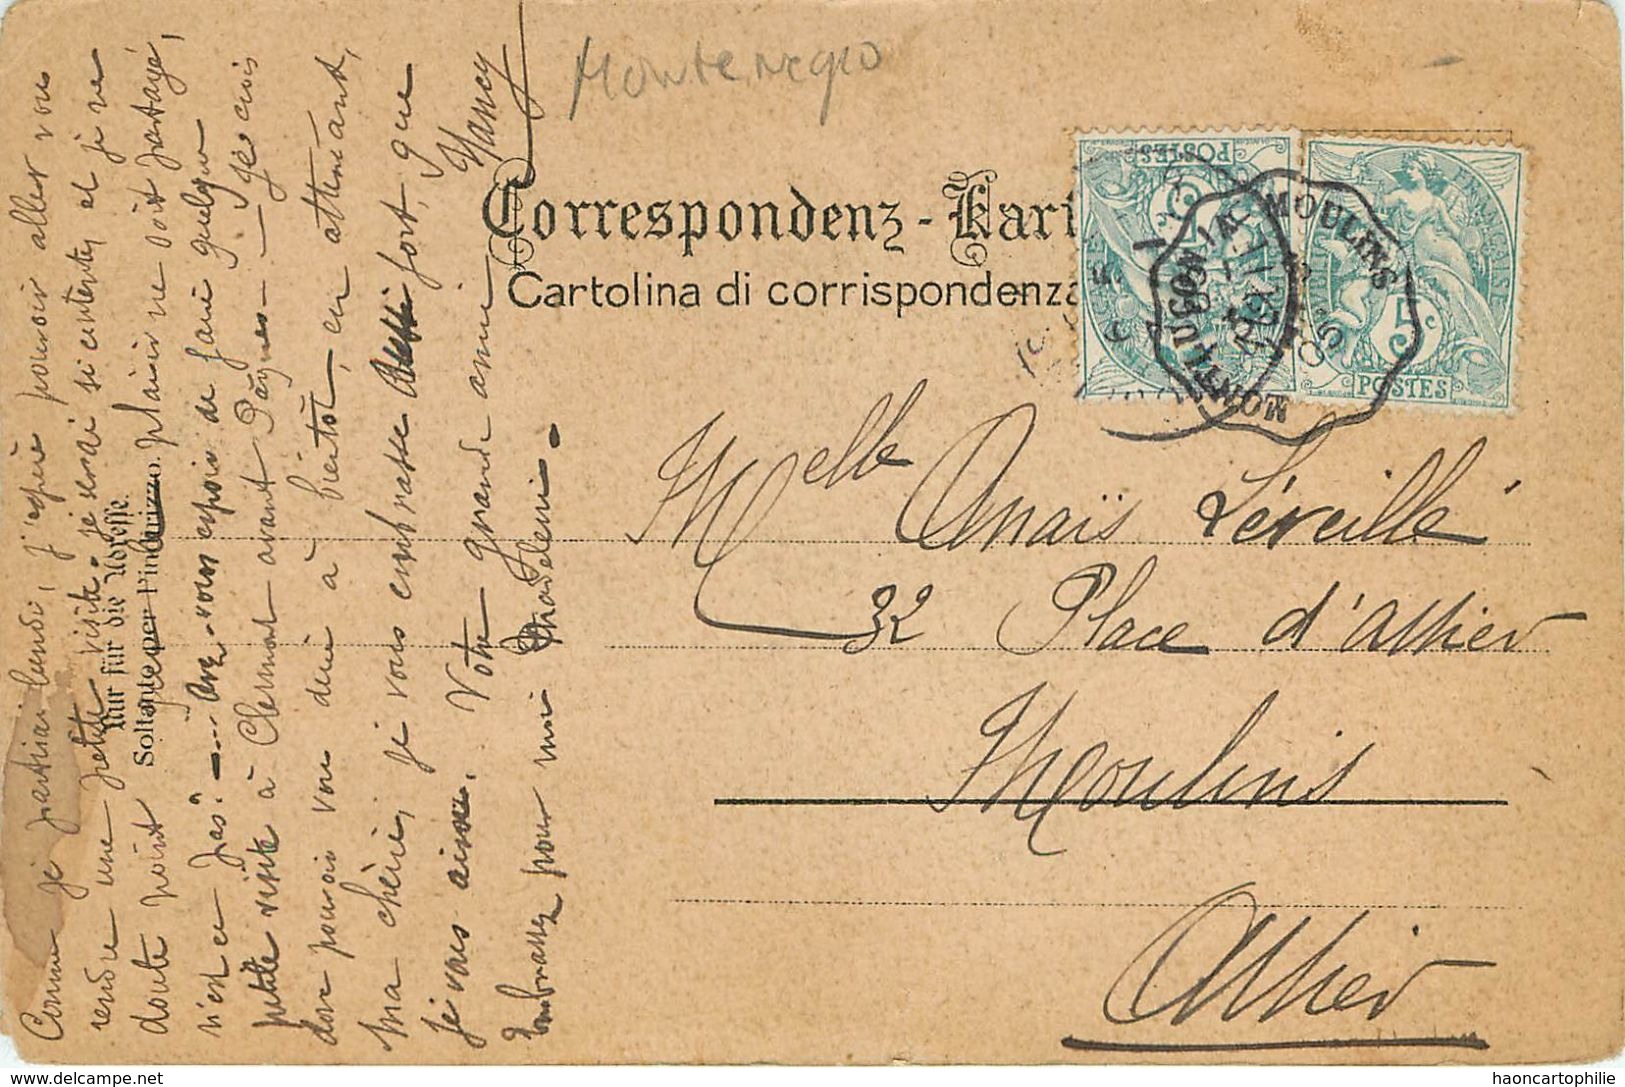 Montenegro
Correspondenz-Kart
Cartolina di corrispondenza
Nur für die Adresse.
Soltanto per l'indirizzo.
POSTES
5c
MONTLUÇON A MOULINS
RÉPUBLIQUE FRANÇAISE
5c
POSTES
Melle Anaïs Léveillé
32 Place d'Allier
Moulins
Allier
Comme je partirai lundi, j'espère pouvoir aller vous
rendre une petite visite. je serai si contente, et je ne
doute point que ce plaisir ne soit partagé,
n'est ce pas?
petite visite à Clermont avant Pâques — Je crois
donc pouvoir vous dire à bientôt, en attendant,
ma chérie, je vous embrasse fort, que
je vous aime. Votre grande amie Nancy
Embrassez pour moi Madeleine.
haoncartophilie